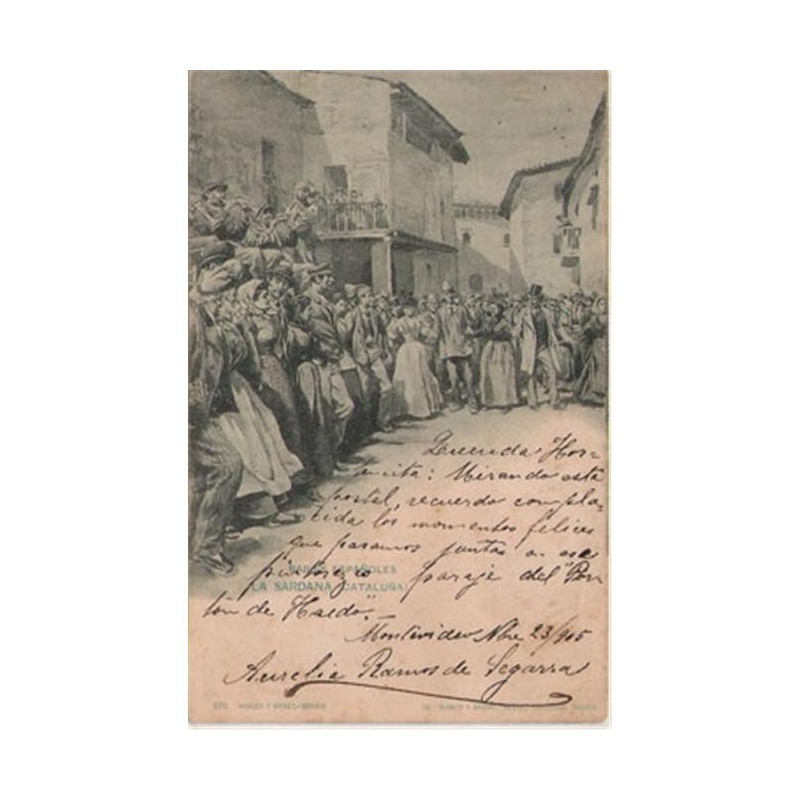 Querida Hor-
tencita: Mirando esta
postal, recuerdo compla-
cida los momentos felices
que pasamos juntas en ese
BAILES ESPAÑOLES
pintoresco paraje del "Por-
LA SARDANA (CATALUÑA)
tón de Haedo".—
Montevideo Nbre 23/905
Aurelia Ramos de Segarra